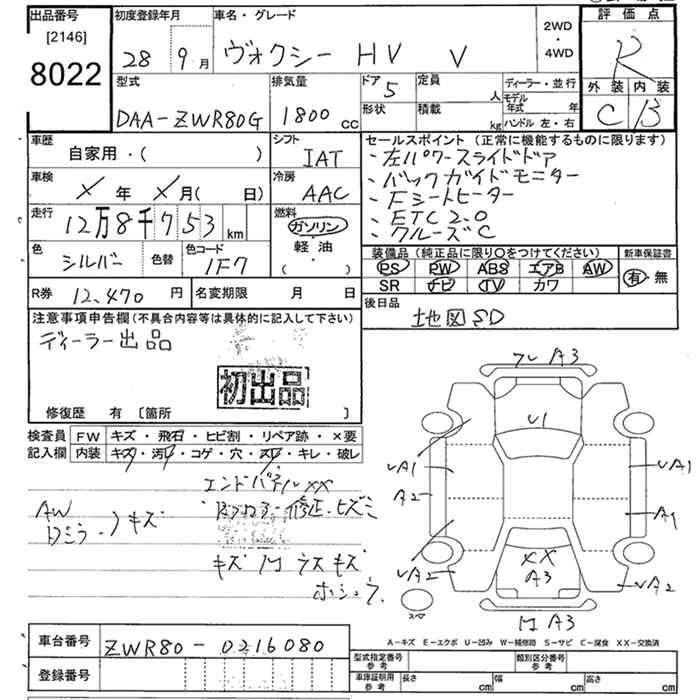 出品番号
[2146]
8022
初度登録年月
28 9月
車名・グレード
ヴォクシー HV V
2WD
・
4WD
評価点
R
外装 内装
C B
型式
DAA-ZWR80G
排気量
1800 cc
ドア
5
形状
定員
人
積載
kg
ディーラー・並行
モデル年式 年
ハンドル 左・右
車歴
自家用・( )
シフト
IAT
車検
× 年 × 月( 日)
冷房
AAC
走行
12万8千753 km
燃料
ガソリン
・
軽油
( ・ )
色
シルバー
色替
色コード
1F7
R券 12,470 円
名変期限 月 日
セールスポイント(正常に機能するものに限ります)
・左パワースライドドア
・バックガイドモニター
・Fシートヒーター
・ETC2.0
・クルーズC
装備品(純正品に限り○をつけてください)
PS PW ABS エアB AW
SR ナビ TV カワ
新車保証書
有・無
後日品
地図SD
注意事項申告欄(不具合内容等は具体的に記入して下さい)
ディーラー出品
初出品
修復歴 有 〔箇所 〕
検査員
記入欄
FW キズ・飛石・ヒビ割・リペア跡・×要
内装 キズ・汚レ・コゲ・穴・スレ・キレ・破レ
エンドパネルXX
Bフロアー修正・ヒズミ
AW
Dミラー
キズ
キズ
ガラスキズ
フレ A3
U1
UA1
A2
UA2
UA1
A1
UA2
XX
A3
A3
A-キズ E-エクボ U-凹み W-補修跡 S-サビ C-腐食 XX-交換済
車台番号 ZWR80-0216080
登録番号
型式指定番号
参考
類別区分番号
参考
車庫証明用
参考
長さ cm
幅 cm
高さ cm